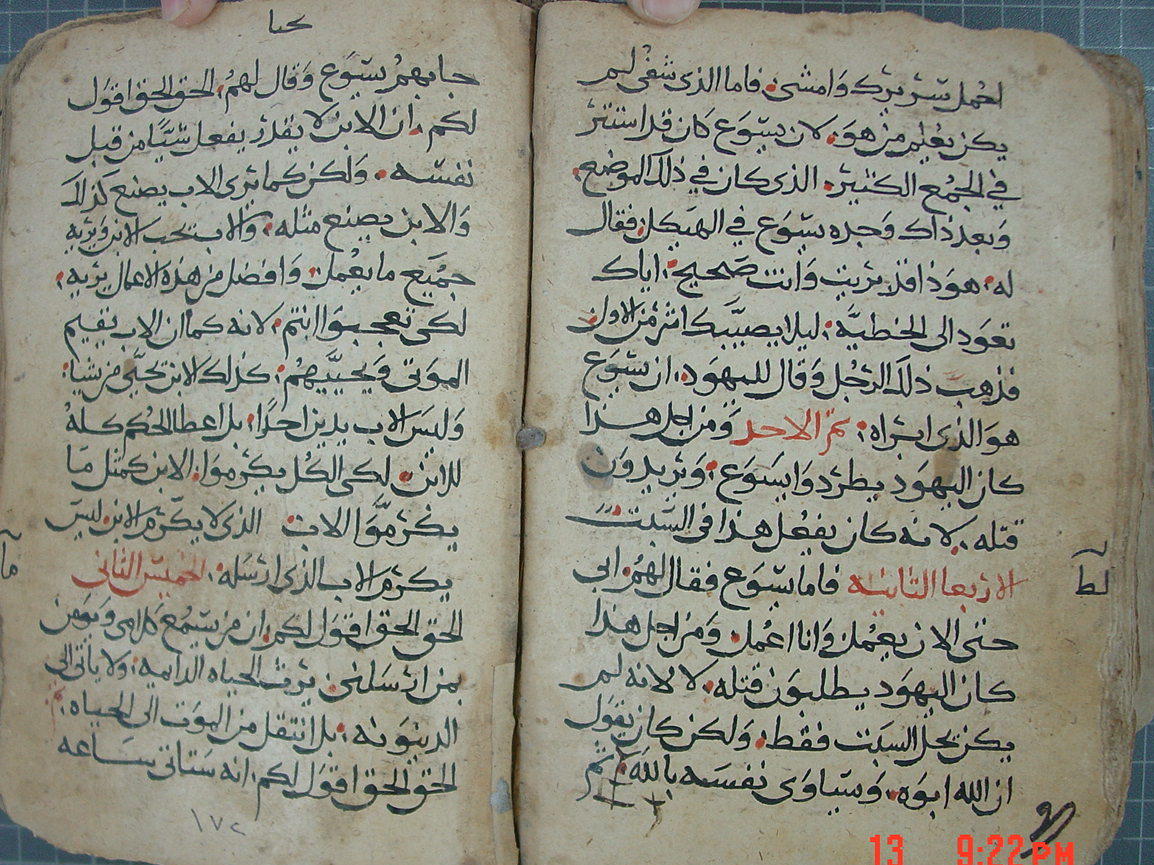 احمل سريرك وامشي. فاما الذي شفى لم
يكن يعلم من هو. لان يسوع كان قد استتر
في الجمع الكثير. الذي كان في ذلك الموضع.
وبعد ذاك وجده يسوع في الهيكل. فقال
له. هوذا قد بريت وانت صحيح. اياك
تعود الى الخطية. ليلا يصيبك اشر من الاول.
فذهب ذلك الرجل وقال لليهود. ان يسوع
هو الذي ابراه. تم الاحد ومن اجل هذا
كان اليهود يطردوا يسوع. ويريدون
قتله. لانه كان يفعل هذا في السبت
الاربعا الثانية فاما يسوع فقال لهم. ابي
حتى الان يعمل وانا اعمل. ومن اجل هذا
كان اليهود يطلبون قتله. لا لانه لم
يكن يحل السبت فقط. ولكن كان يقول
ان الله ابوه. ويساوي نفسه بالله. تم
لط
جابهم يسوع وقال لهم. الحق الحق اقول
لكم. ان الابن لا يقدر يفعل شيًا من قبل
نفسه. ولكن كما يرى الاب يصنع كذلك
والابن يصنع مثله. والاب يحب الابن ويريه
جميع ما يعمل. وافضل من هذه الاعمال يريه.
لكي تعجبوا انتم. لانه كما ان الاب يقيم
الموتى ويحييهم. كذلك الابن يحيي من يشا.
وليس الاب يدين احدًا. بل اعطا الحكم كله
للابن. لكي الكل يكرموا الابن كمثل ما
يكرموا الاب الذي لا يكرم الابن ليس
يكرم الاب الذي ارسله. الخميس الثاني
الحق الحق اقول لكم. ان من يسمع كلامي ويومن
بمن ارسلني. يرث الحياه الدايمه. ولا ياتي الى
الدينونه. بل انتقل من الموت الى الحياه.
الحق الحق اقول لكم. انه ستاتي ساعه
١٧٢
13 9:22 PM